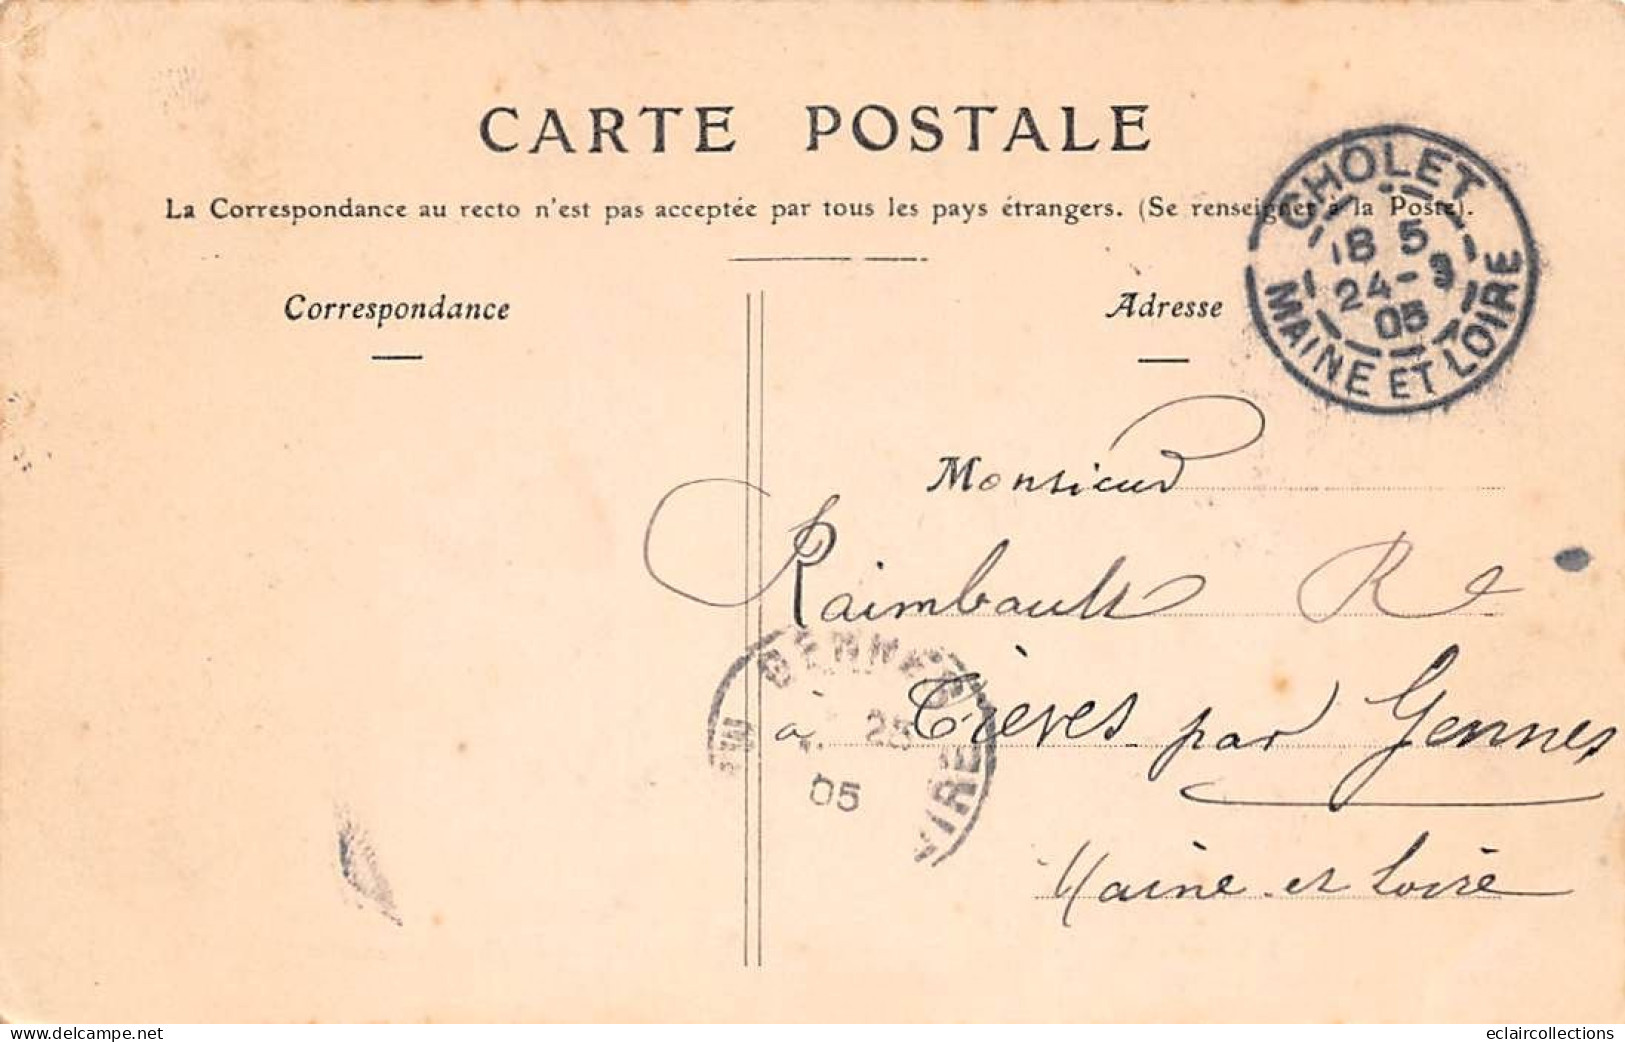 CARTE POSTALE
La Correspondance au recto n'est pas acceptée par tous les pays étrangers. (Se renseigner à la Poste).
CHOLET
18 5
24-3
05
MAINE ET LOIRE
Correspondance
Adresse
Monsieur
Raimbault R
GENNES
25
05
à Trèves par Gennes
Maine et Loire
www.delcampe.net
eclaircollections